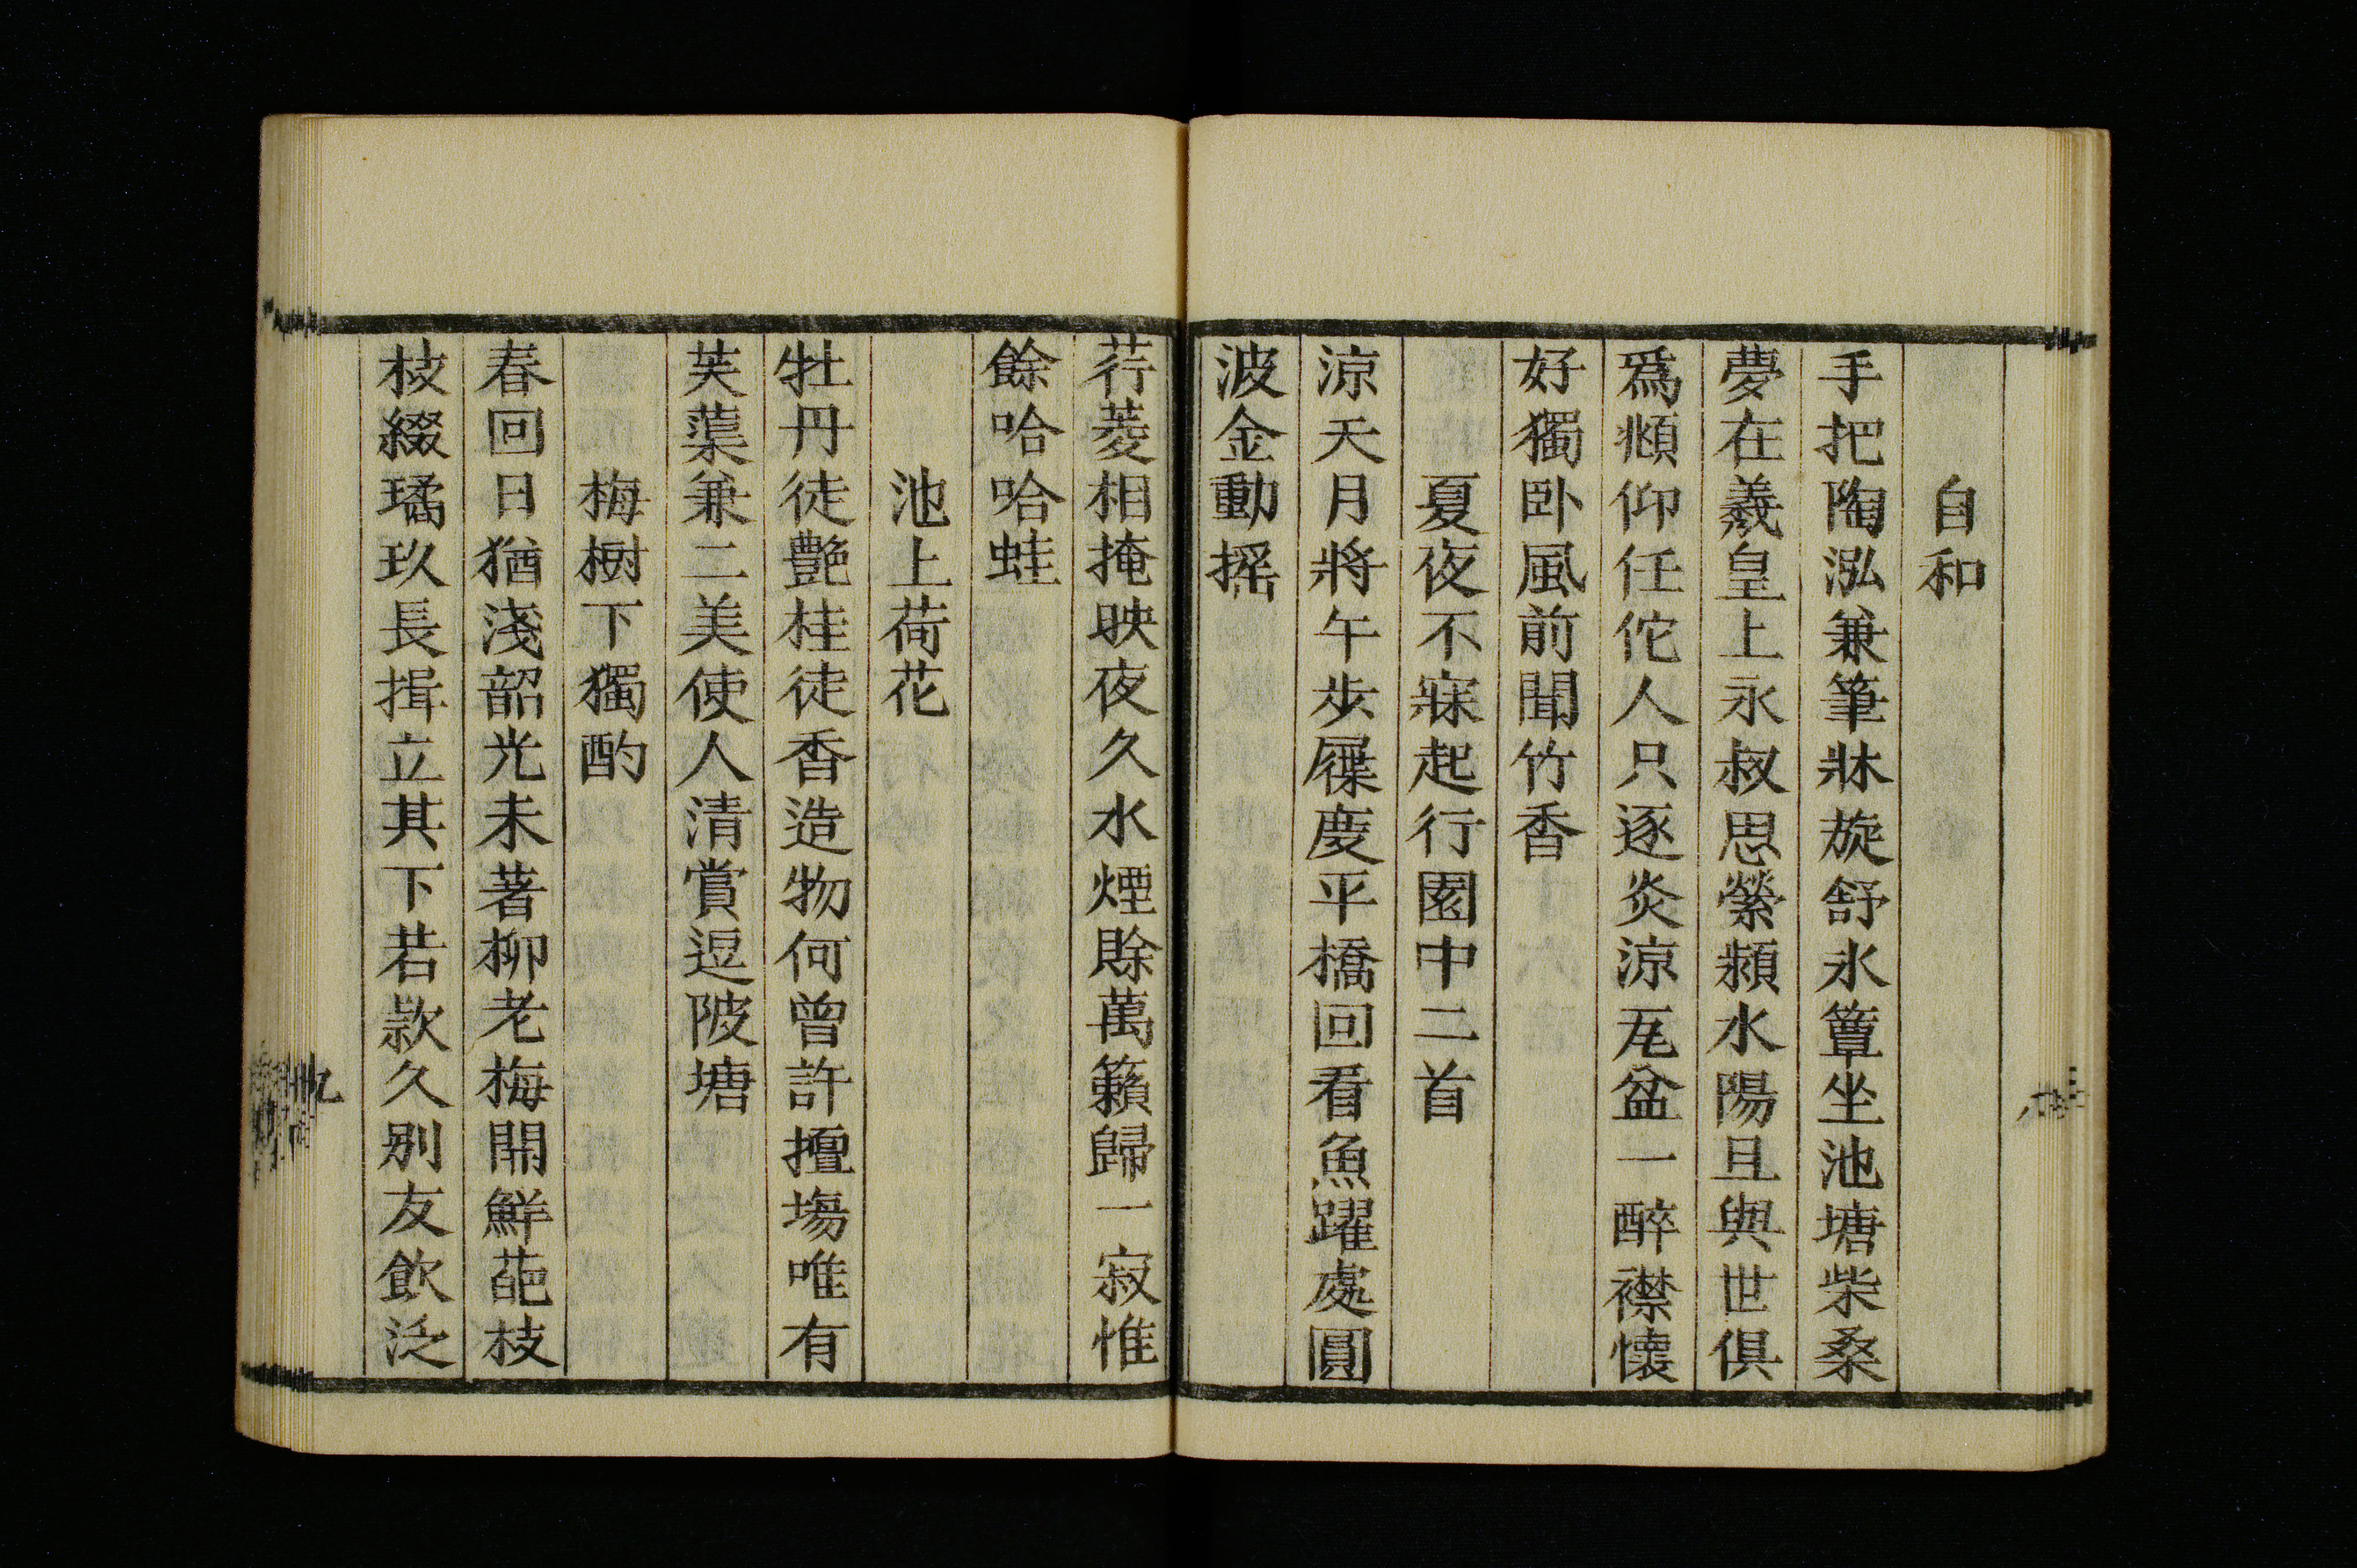 自和
手把陶泓兼筆牀旋舒氷簟坐池塘柴桑
夢在羲皇上永叔思縈潁水陽且與世俱
爲頫仰任佗人只逐炎涼瓦盆一醉襟懷
好獨卧風前聞竹香
夏夜不寐起行園中二首
涼天月將午步屧度平橋回看魚躍處圓
波金動搖
荇菱相掩映夜久水煙賖萬籟歸一寂惟
餘哈哈蛙
池上荷花
牡丹徒艷桂徒香造物何曾許擅塲唯有
芙蕖兼二美使人清賞逗陂塘
梅樹下獨酌
春回日猶淺韶光未著柳老梅開鮮葩枝
枝綴璚玖長揖立其下若款久別友飲泛
九